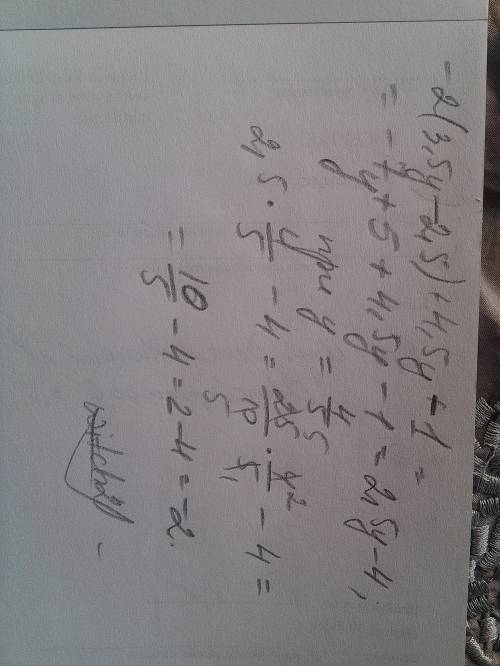 -2(3,5y-2,5)+4,5y-1=
=-7y+5+4,5y-1=2,5y-4,
при y=4/5
2,5·4/5-4=25/10·4/5-4=
=10/5-4=2-4=-2.